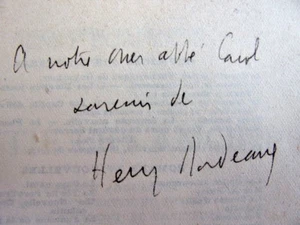 A notre cher abbé Carol
souvenir de
Henry Bordeaux